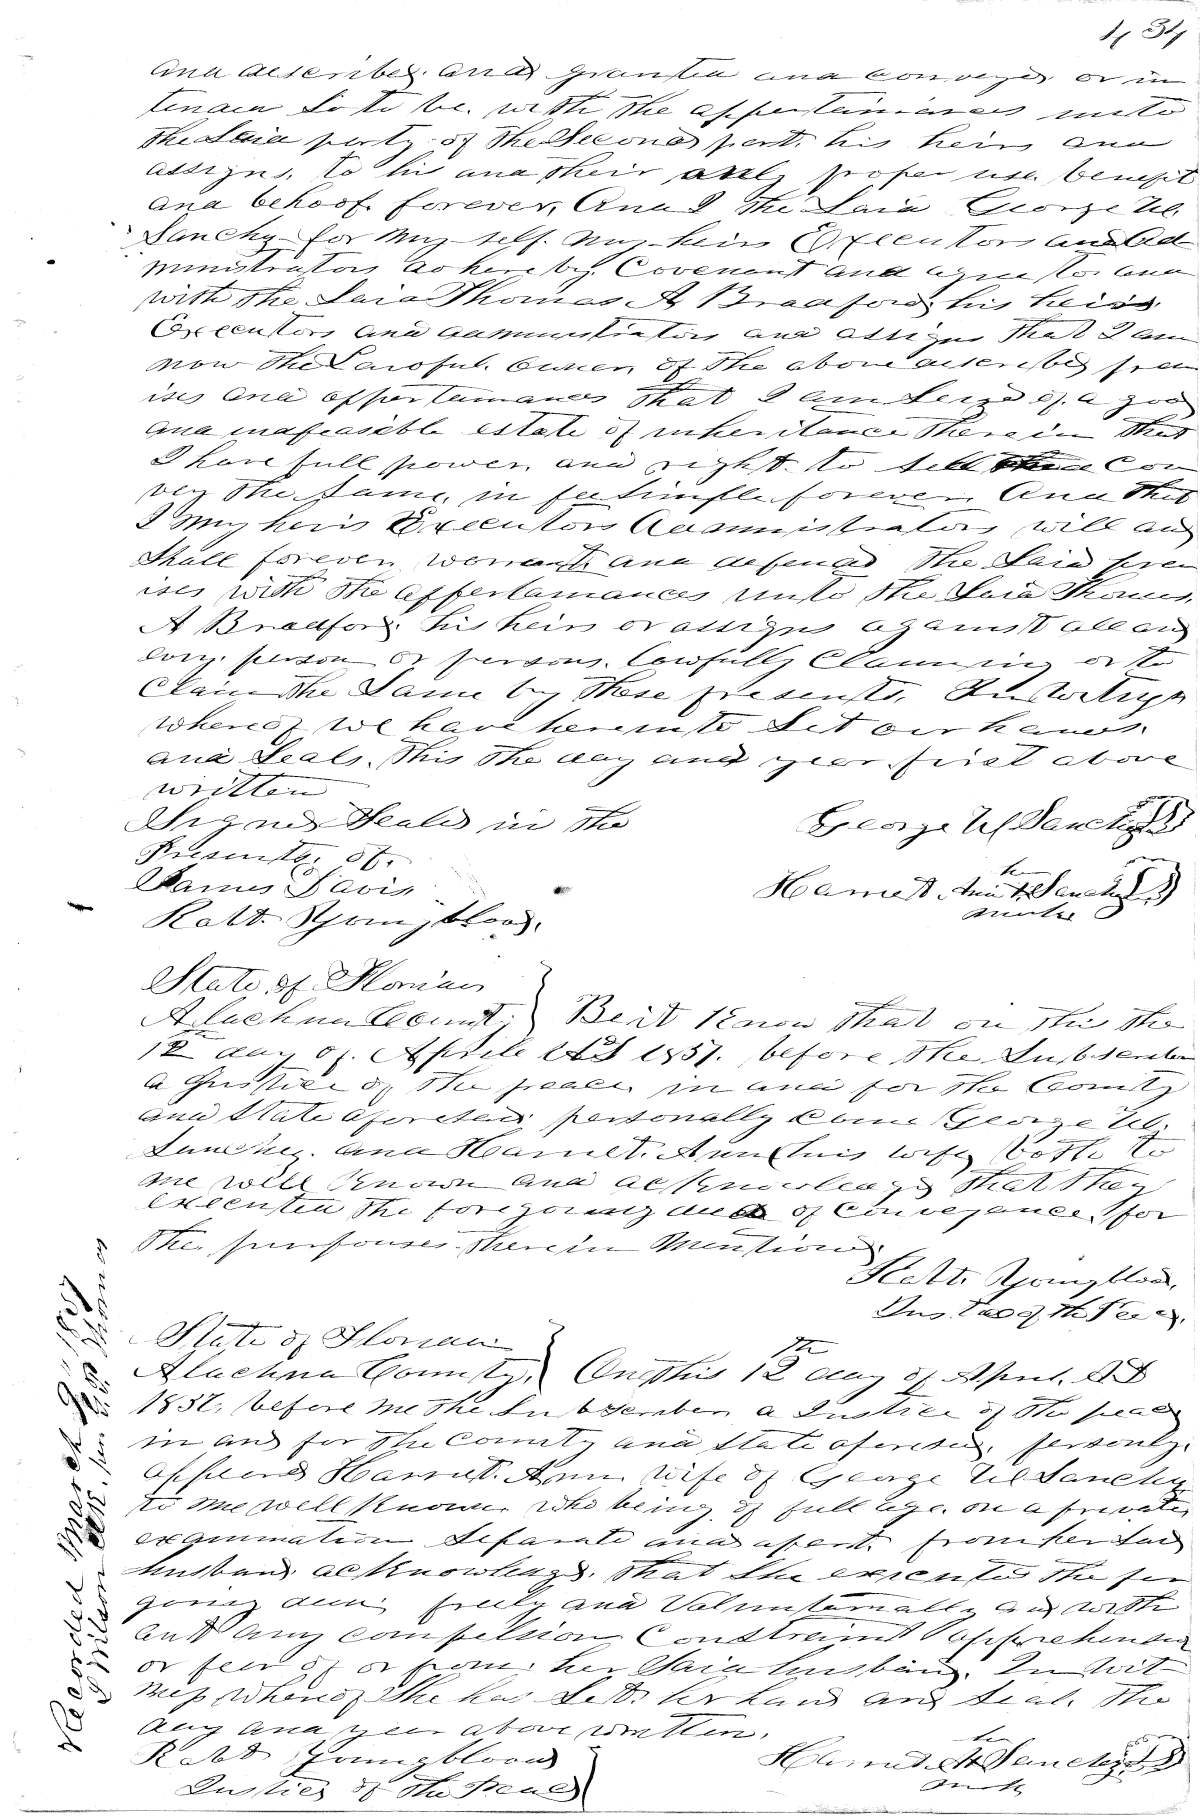 434
and described and granted and conveyed or in
tended so to be with the appertainances unto
the said party of the second part, his heirs and
assigns, to his and their only proper use benefit
and behoof forever, And I the said George W.
Sanchy for my self my heirs Executors and Ad
ministrators do hereby Covenant and agree to and
with the said Thomas A Bradford, his heirs
Executors and administrators and assigns that I am
now the Lawful owner of the above described prem
ises and appertainances that I am seized of a good
and indefeasible estate of inheritance therein that
I have full power, and right to sell Con
vey the same, in fee simple forever And that
I my heirs Executors Administrators will and
shall forever warrant and defend the said prem
ises with the appertainances unto the said Thomas
A Bradford his heirs or assigns against all and
every person or persons lawfully claiming or to
claim the same by these presents, In witness
whereof we have hereunto set our hands
and seals, this the day and year first above
written
Signed Sealed in the
Presents of
James Davis
Robt. Youngblood.
George W Sanchy
her
Harriet Ann X Sanchy
mark
State of Florida
Alachua County } Be it Known that on this the
12th day of Aprile AD 1857. before the Subscriber
a Justice of the peace in and for the County
and State aforesaid personally came George W.
Sanchy and Harriet Ann his wife both to
me well Known and acknowledged that they
executed the foregoing deed of conveyance for
the purpouses therein mentioned
Robt. Youngblood,
Justice of the Peace.
State of Florida
Alachua County, } On this 12th day of April, AD
1857, before me the Subscriber a Justice of the peace
in and for the County and State aforesaid, personly
appeared Harriet Ann wife of George W Sanchy
to me well Known who being of full age on a private
examination separate and apart from her said
husband acknowledged that she executed the for
going deed freely and Voluntarially and with
out any compulsion Constraint apprehension
or fear of or from her said husband. In wit
ness whereof she has set her hand and seal the
day and year above written.
Robt Youngblood
Justice of the Peace
her
Harriet A Sanchy
mark
Recorded March 9th 1857
Wilson Clk, per Thomas